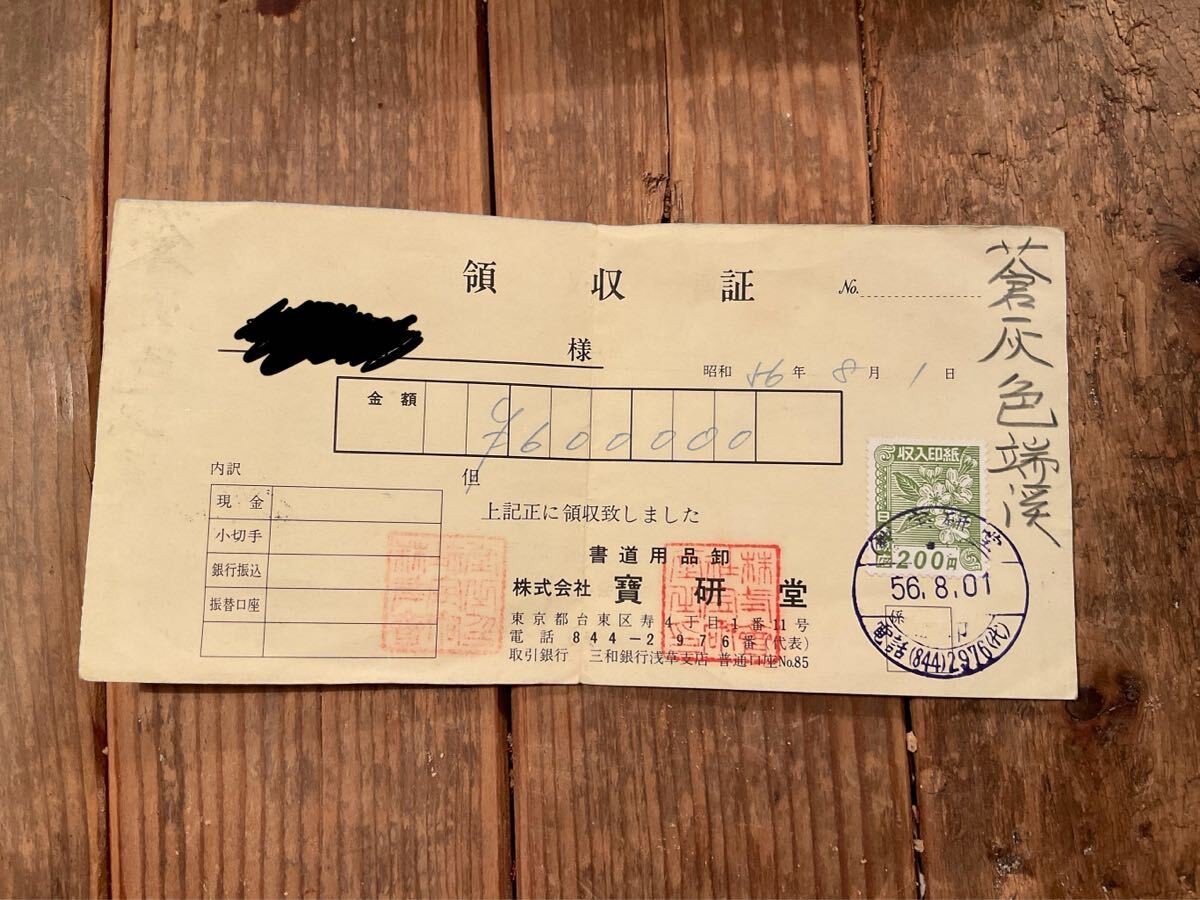 領収証
No.
様
昭和 56年 8月 1日
金額
¥600000
但
内訳
現金
小切手
銀行振込
振替口座
上記正に領収致しました
書道用品卸
株式会社 寶研堂
東京都台東区寿4丁目1番11号
電話 844-2976番(代表)
取引銀行 三和銀行浅草支店 普通口座No.85
蒼灰色端渓
収入印紙
200円
56.8.01
電話(844)2976(代)